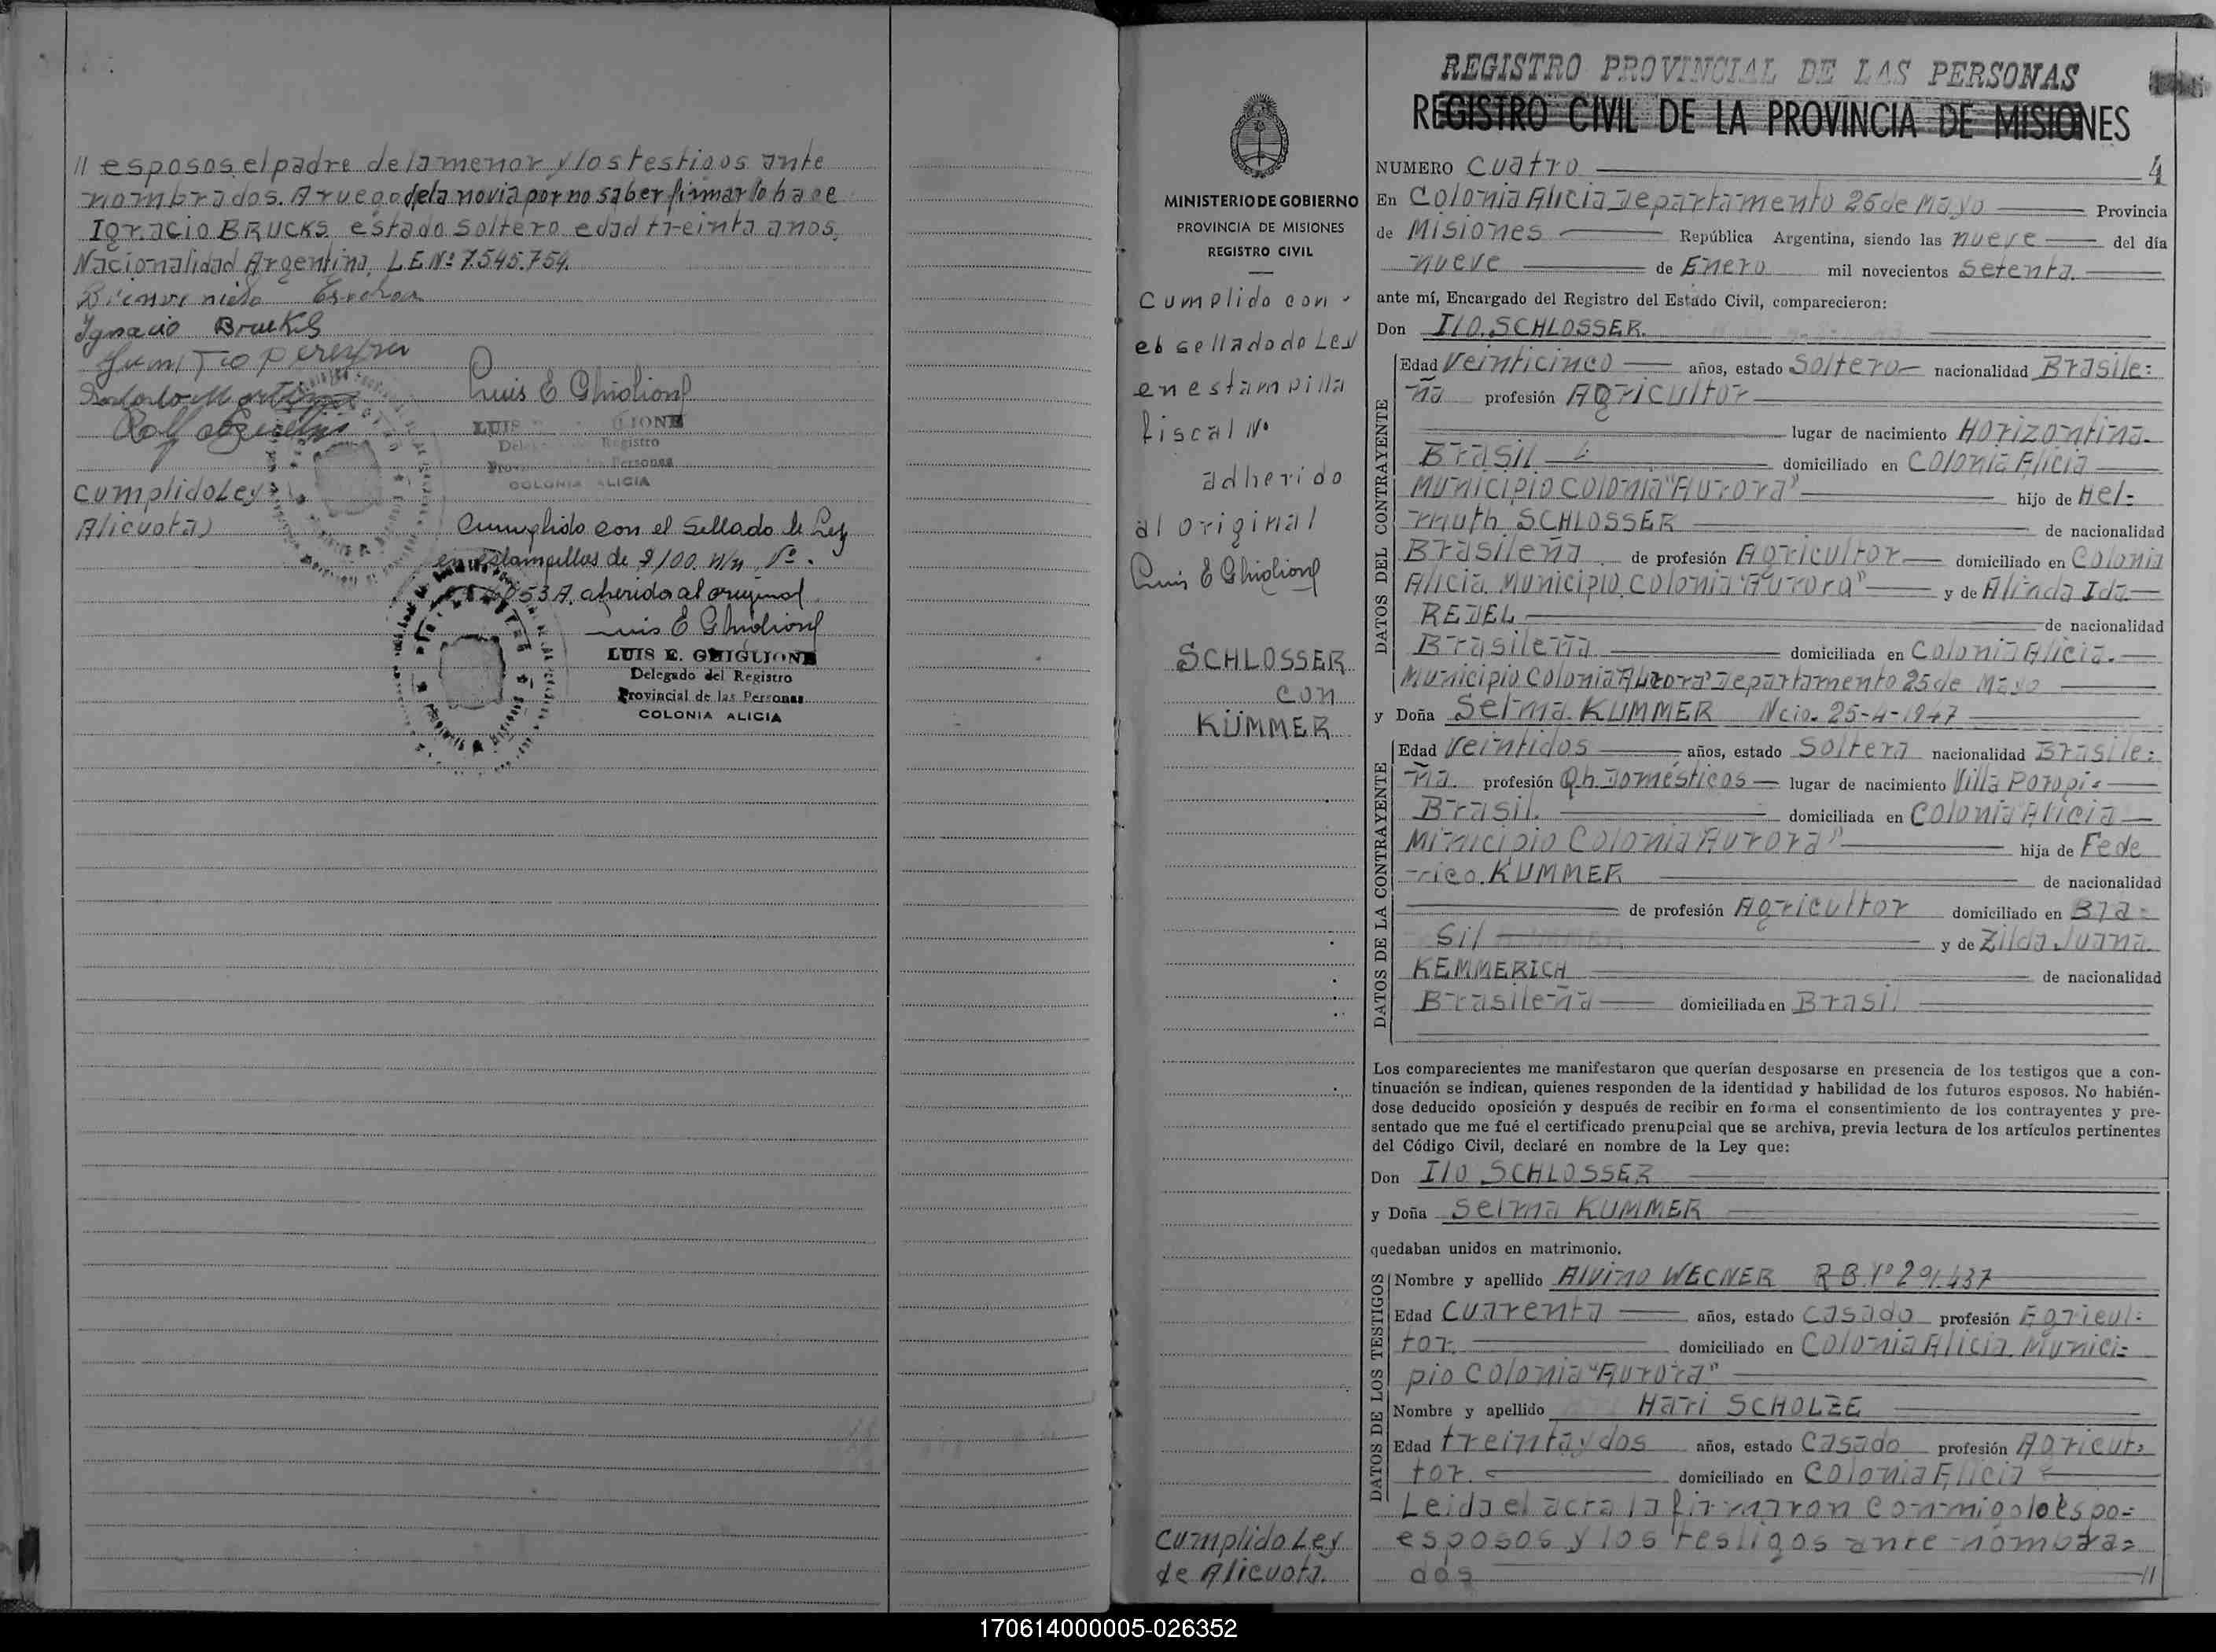 // esposos, el padre de la menor y los testigos ante
nombrados. A ruego de la novia por no saber firmar lo hace
Ignacio BRUCKS estado Soltero edad treinta anos,
Nacionalidad Argentina, L.E.Nº 7.545.754.
Ignacio Brucks
Luis E Ghiglione
LUIS GLIONE
Registro
de las Personas
COLONIA ALICIA
cumplido Ley
Alicuota)
Cumplido con el Sellado de Ley
en estampillas de $/00. m/n Nº.
053A. aherido al original
Luis E Ghiglione
LUIS E. GHIGLIONE
Delegado del Registro
Provincial de las Personas
COLONIA ALICIA
MINISTERIO DE GOBIERNO
PROVINCIA DE MISIONES
REGISTRO CIVIL
Cumplido con
el sellado de Ley
en estampilla
fiscal Nº
adherido
al original
Luis E Ghiglione
SCHLOSSER
con
KÜMMER
Cumplido Ley
de Alicuota.
REGISTRO PROVINCIAL DE LAS PERSONAS
REGISTRO CIVIL DE LA PROVINCIA DE MISIONES
NUMERO Cuatro 4
En Colonia Alicia Departamento 25 de Mayo Provincia
de Misiones República Argentina, siendo las nueve del día
nueve de Enero mil novecientos Setenta.
ante mí, Encargado del Registro del Estado Civil, comparecieron:
Don Ilo. SCHLOSSER.
DATOS DEL CONTRAYENTE
Edad Veinticinco años, estado Soltero nacionalidad Brasile=
ña profesión Agricultor
lugar de nacimiento Horizontina-
Brasil domiciliado en Colonia Alicia
Municipio Colonia "Aurora" hijo de Hel=
muth SCHLOSSER de nacionalidad
Brasileña de profesión Agricultor domiciliado en Colonia
Alicia. Municipio Colonia "Aurora" y de Alinda Ida
REDEL de nacionalidad
Brasileña domiciliada en Colonia Alicia.
Municipio Colonia "Aurora" Departamento 25 de Mayo
y Doña Selma KUMMER Ncio. 25-4-1947
DATOS DE LA CONTRAYENTE
Edad Veintidos años, estado Soltera nacionalidad Brasile=
ña. profesión Qh. Domésticos lugar de nacimiento Villa Poropi
Brasil. domiciliada en Colonia Alicia
Municipio Colonia "Aurora" hija de Fede
rico. KUMMER de nacionalidad
de profesión Agricultor domiciliado en Bra=
sil y de Zilda Juana.
KEMMERICH de nacionalidad
Brasileña domiciliada en Brasil
Los comparecientes me manifestaron que querían desposarse en presencia de los testigos que a con-
tinuación se indican, quienes responden de la identidad y habilidad de los futuros esposos. No habién-
dose deducido oposición y después de recibir en forma el consentimiento de los contrayentes y pre-
sentado que me fué el certificado prenupcial que se archiva, previa lectura de los artículos pertinentes
del Código Civil, declaré en nombre de la Ley que:
Don Ilo SCHLOSSER
y Doña Selma KUMMER
quedaban unidos en matrimonio.
DATOS DE LOS TESTIGOS
Nombre y apellido Alvino WECNER R B Nº 291.437
Edad Cuarenta años, estado Casado profesión Agricul=
tor. domiciliado en Colonia Alicia. Munici=
pio Colonia "Aurora"
Nombre y apellido Hari SCHOLZE
Edad treinta y dos años, estado Casado profesión Agricut=
tor. domiciliado en Colonia Alicia
Leida el acta la firmaron conmigo los espo=
esposos y los testigos ante nombra=
dos //
170614000005-026352